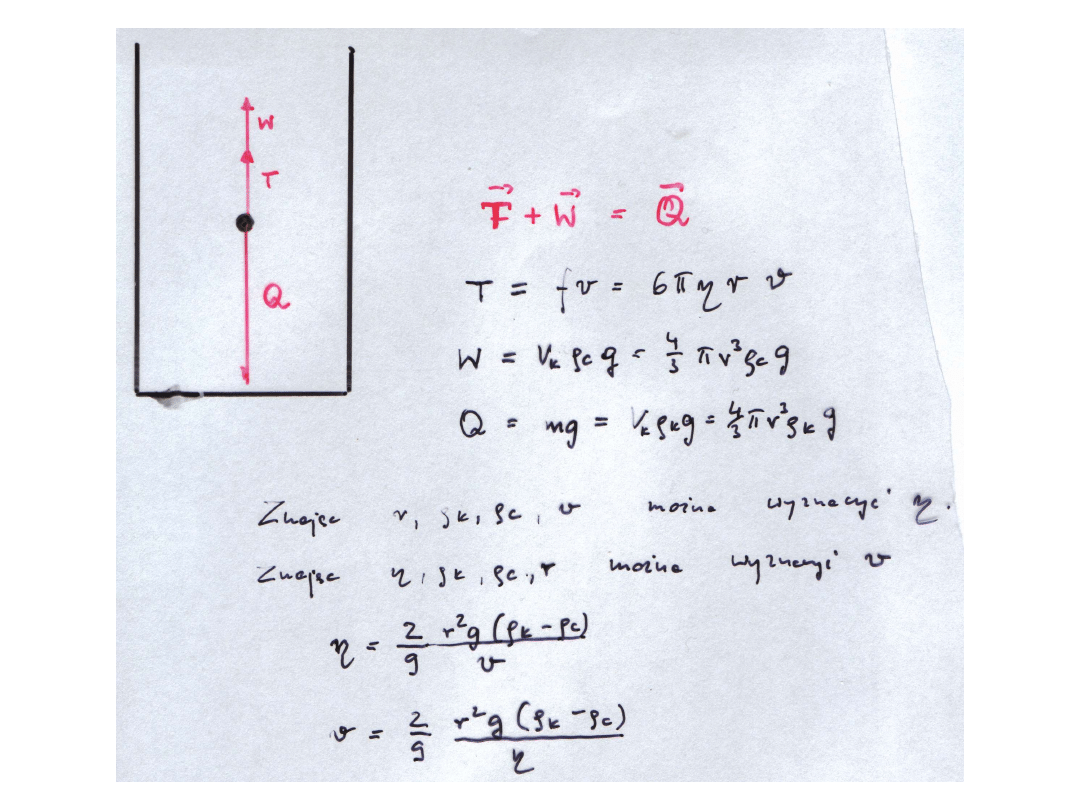 W
T
Q
T⃗ + W⃗ = Q⃗
T = fv = 6πηr v
W = Vₖ ρc g = 4/3 πr³ρc g
Q = mg = Vₖρₖg = 4/3 πr³ρₖ g
Znając r, ρₖ, ρc, v można wyznaczyć η.
Znając η, ρₖ, ρc, r można wyznaczyć v
η = 2/9 r²g (ρₖ - ρc)/v
v = 2/9 r²g (ρₖ - ρc)/η